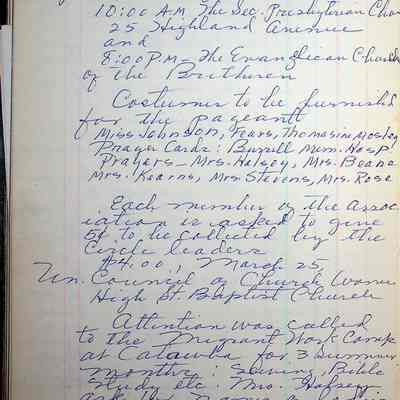 10:00 A.M. The Sec. Presbyterian
25 Highland Avenue
and
8:00 P.M. The Evangelican Church
of the Bretheren
Costumes to be furnished
for the pageant
Miss Johnson, Fears, Thomasine Mosley
Prayer Cards: Burrell Mem. Hosp.
Prayers - Mrs. Halsey, Mrs. Beane
Mrs. Kearns, Mrs. Stevens, Mrs. Rose
Each member of the Assoc-
iation is asked to give
5¢ to be collected by the
Circle leaders
$4.00, March 25,
Un. Council of Church Women
High St. Baptist Church
Attention was called
to the Migrant Work Camp
at Catawba for 3 Summer
months: Sewing, Bible
Study etc. Mrs.